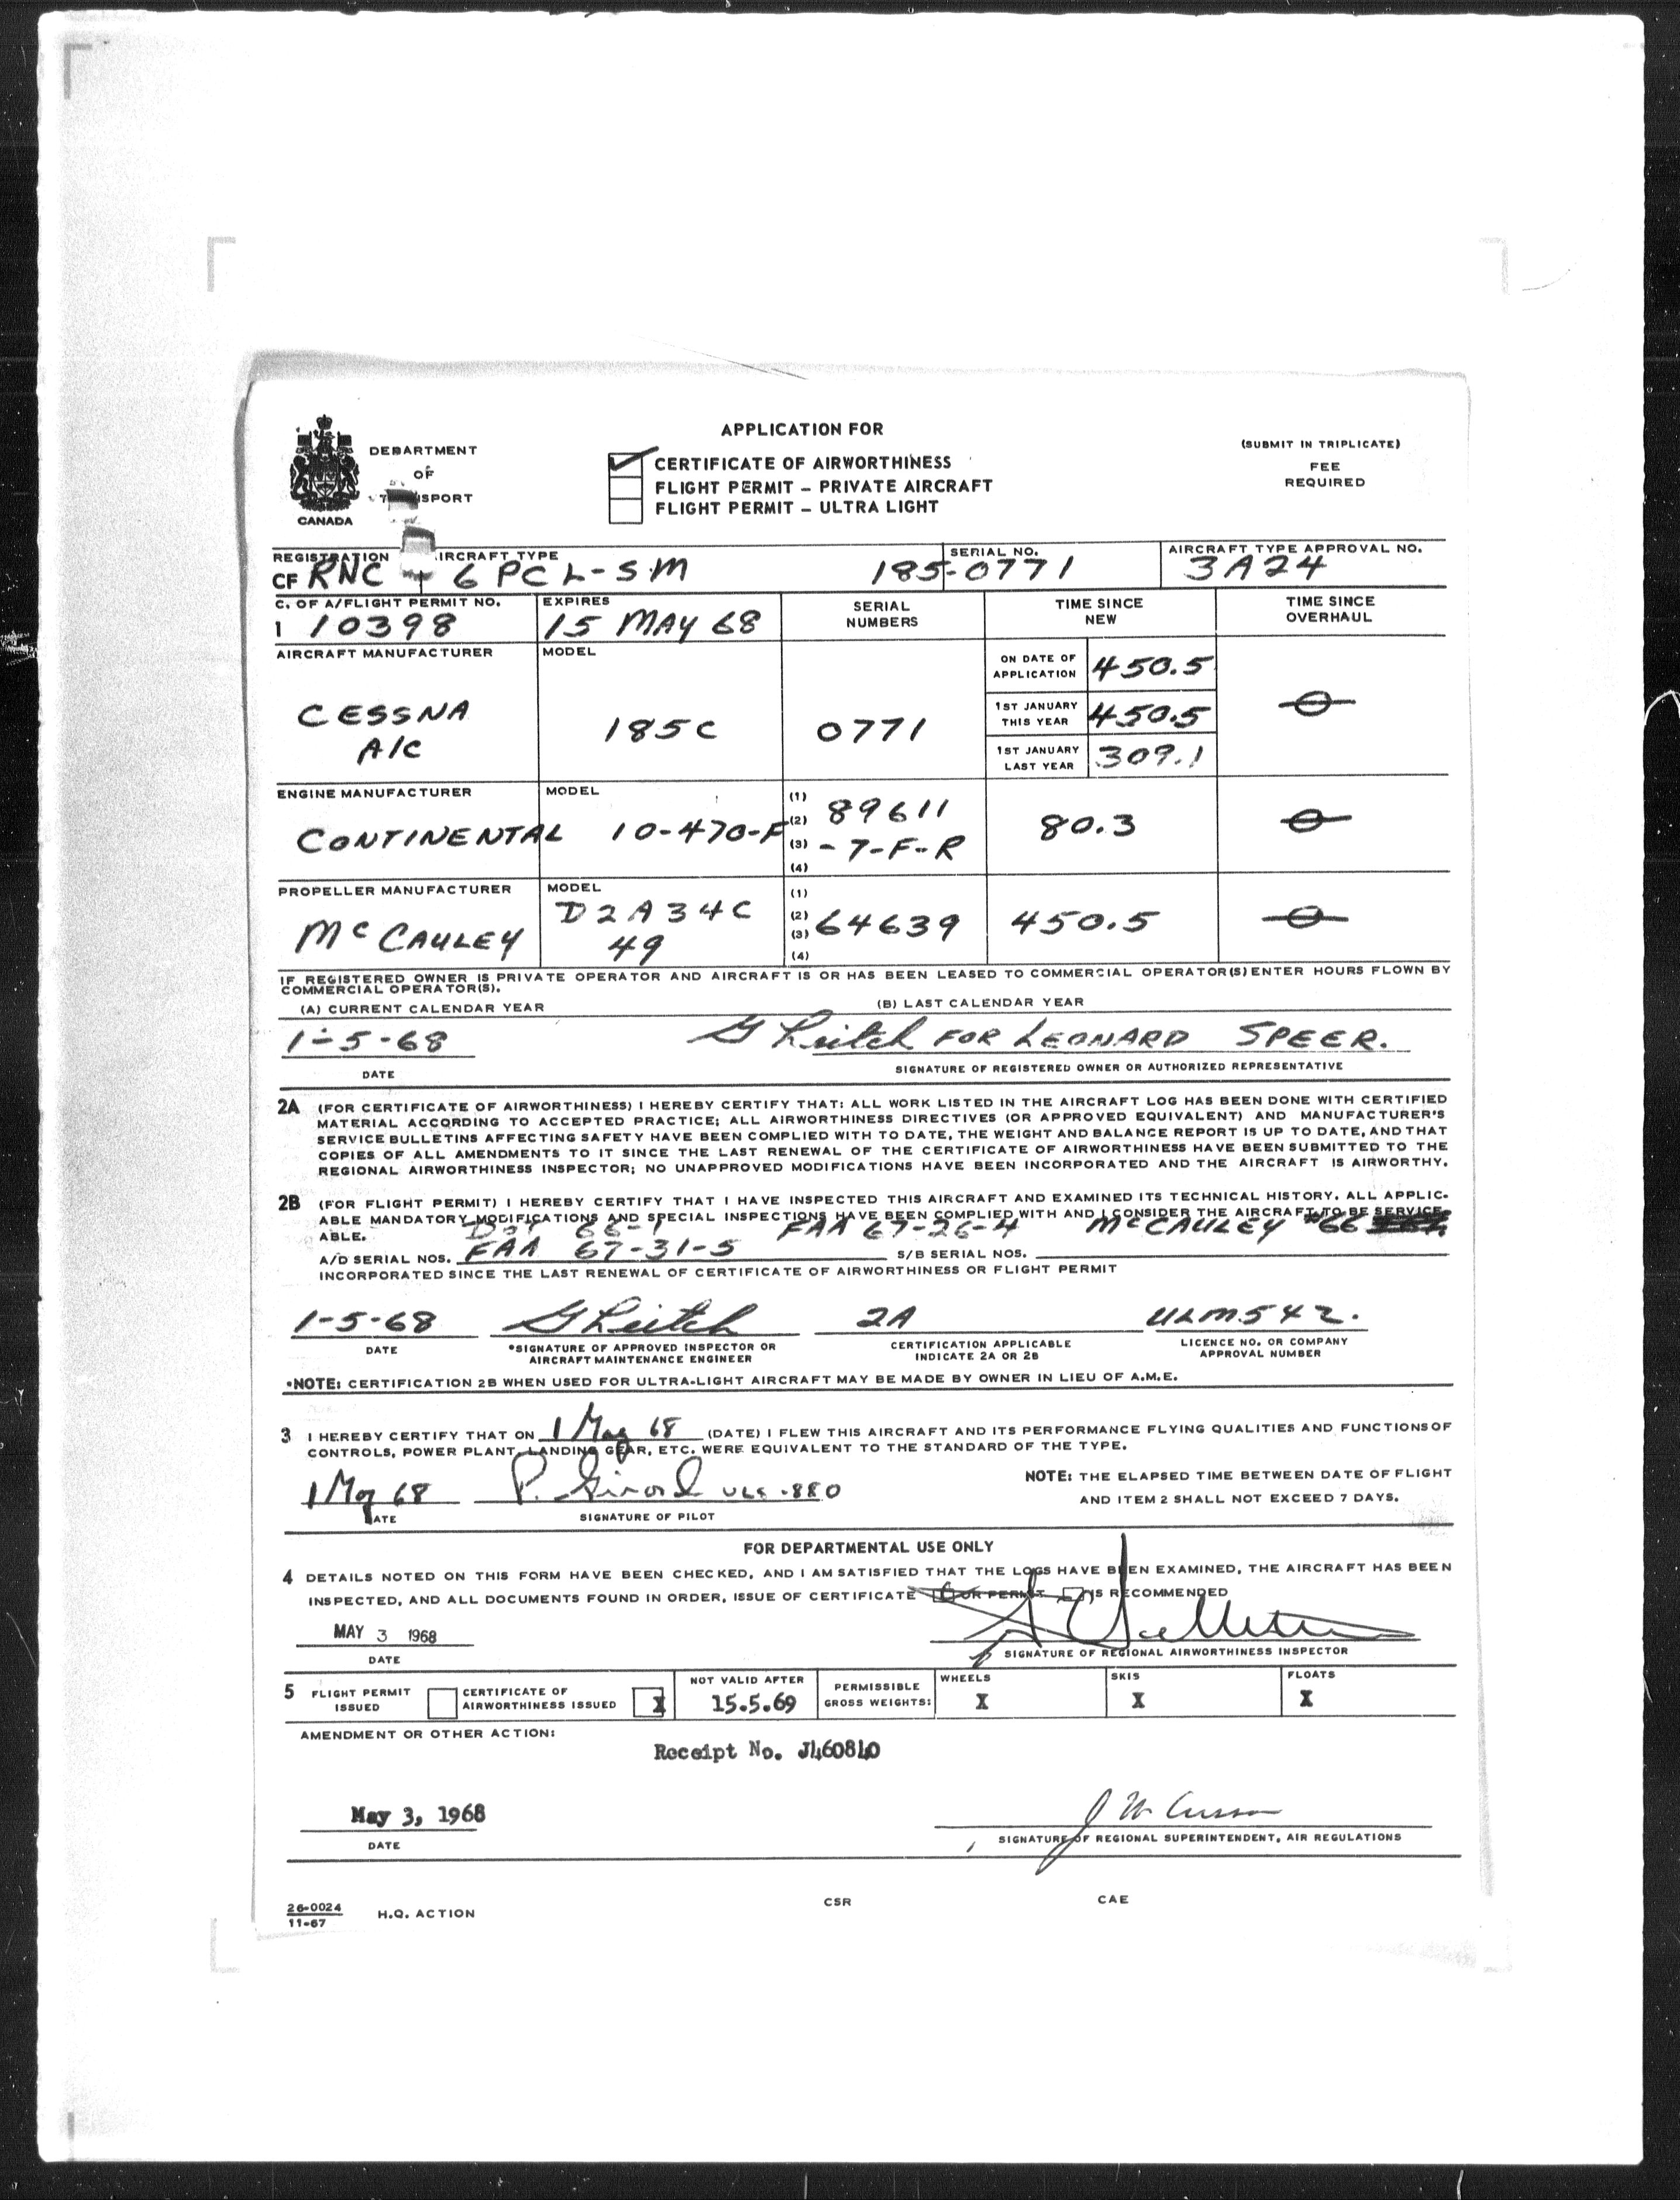 APPLICATION FOR
(SUBMIT IN TRIPLICATE)
FEE
REQUIRED
DEPARTMENT
OF
CANADA
CERTIFICATE OF AIRWORTHINESS
FLIGHT PERMIT – PRIVATE AIRCRAFT
FLIGHT PERMIT – ULTRA LIGHT
REGISTRATION
CF RNC
AIRCRAFT TYPE
6 PCL-SM
SERIAL NO.
185-0771
AIRCRAFT TYPE APPROVAL NO.
3A24
C. OF A/FLIGHT PERMIT NO.
1 10398
EXPIRES
15 MAY 68
SERIAL
NUMBERS
TIME SINCE
NEW
TIME SINCE
OVERHAUL
AIRCRAFT MANUFACTURER
CESSNA
A/C
MODEL
185C
0771
ON DATE OF
APPLICATION
450.5
1ST JANUARY
THIS YEAR
450.5
1ST JANUARY
LAST YEAR
309.1
ENGINE MANUFACTURER
CONTINENTAL
MODEL
10-470-F
(1)
(2)
(3)
(4)
89611
-7-F-R
80.3
PROPELLER MANUFACTURER
McCAULEY
MODEL
D2A34C
49
(1)
(2)
(3)
(4)
64639
450.5
IF REGISTERED OWNER IS PRIVATE OPERATOR AND AIRCRAFT IS OR HAS BEEN LEASED TO COMMERCIAL OPERATOR(S) ENTER HOURS FLOWN BY
COMMERCIAL OPERATOR(S).
(A) CURRENT CALENDAR YEAR
(B) LAST CALENDAR YEAR
1-5-68
G Leitch FOR LEONARD SPEER.
DATE
SIGNATURE OF REGISTERED OWNER OR AUTHORIZED REPRESENTATIVE
2A (FOR CERTIFICATE OF AIRWORTHINESS) I HEREBY CERTIFY THAT: ALL WORK LISTED IN THE AIRCRAFT LOG HAS BEEN DONE WITH CERTIFIED
MATERIAL ACCORDING TO ACCEPTED PRACTICE; ALL AIRWORTHINESS DIRECTIVES (OR APPROVED EQUIVALENT) AND MANUFACTURER'S
SERVICE BULLETINS AFFECTING SAFETY HAVE BEEN COMPLIED WITH TO DATE, THE WEIGHT AND BALANCE REPORT IS UP TO DATE, AND THAT
COPIES OF ALL AMENDMENTS TO IT SINCE THE LAST RENEWAL OF THE CERTIFICATE OF AIRWORTHINESS HAVE BEEN SUBMITTED TO THE
REGIONAL AIRWORTHINESS INSPECTOR; NO UNAPPROVED MODIFICATIONS HAVE BEEN INCORPORATED AND THE AIRCRAFT IS AIRWORTHY.
2B (FOR FLIGHT PERMIT) I HEREBY CERTIFY THAT I HAVE INSPECTED THIS AIRCRAFT AND EXAMINED ITS TECHNICAL HISTORY. ALL APPLIC-
ABLE MANDATORY MODIFICATIONS AND SPECIAL INSPECTIONS HAVE BEEN COMPLIED WITH AND I CONSIDER THE AIRCRAFT TO BE SERVICE
ABLE.
FAA 67-26-4 McCAULEY #66
A/D SERIAL NOS. FAA 67-31-5 S/B SERIAL NOS.
INCORPORATED SINCE THE LAST RENEWAL OF CERTIFICATE OF AIRWORTHINESS OR FLIGHT PERMIT
1-5-68 G Leitch 2A ULM542.
DATE
*SIGNATURE OF APPROVED INSPECTOR OR
AIRCRAFT MAINTENANCE ENGINEER
CERTIFICATION APPLICABLE
INDICATE 2A OR 2B
LICENCE NO. OR COMPANY
APPROVAL NUMBER
*NOTE: CERTIFICATION 2B WHEN USED FOR ULTRA-LIGHT AIRCRAFT MAY BE MADE BY OWNER IN LIEU OF A.M.E.
3 I HEREBY CERTIFY THAT ON 1 May 68 (DATE) I FLEW THIS AIRCRAFT AND ITS PERFORMANCE FLYING QUALITIES AND FUNCTIONS OF
CONTROLS, POWER PLANT, LANDING GEAR, ETC. WERE EQUIVALENT TO THE STANDARD OF THE TYPE.
1 May 68 P. Girard
DATE
SIGNATURE OF PILOT
NOTE: THE ELAPSED TIME BETWEEN DATE OF FLIGHT
AND ITEM 2 SHALL NOT EXCEED 7 DAYS.
FOR DEPARTMENTAL USE ONLY
4 DETAILS NOTED ON THIS FORM HAVE BEEN CHECKED, AND I AM SATISFIED THAT THE LOGS HAVE BEEN EXAMINED, THE AIRCRAFT HAS BEEN
INSPECTED, AND ALL DOCUMENTS FOUND IN ORDER, ISSUE OF CERTIFICATE OR PERMIT IS RECOMMENDED
MAY 3 1968
DATE
SIGNATURE OF REGIONAL AIRWORTHINESS INSPECTOR
5 FLIGHT PERMIT
ISSUED
CERTIFICATE OF
AIRWORTHINESS ISSUED
X
NOT VALID AFTER
15.5.69
PERMISSIBLE
GROSS WEIGHTS:
WHEELS
X
SKIS
X
FLOATS
X
AMENDMENT OR OTHER ACTION:
Receipt No. J460840
May 3, 1968
DATE
SIGNATURE OF REGIONAL SUPERINTENDENT, AIR REGULATIONS
26-0024
11-67
H.Q. ACTION
CSR
CAE